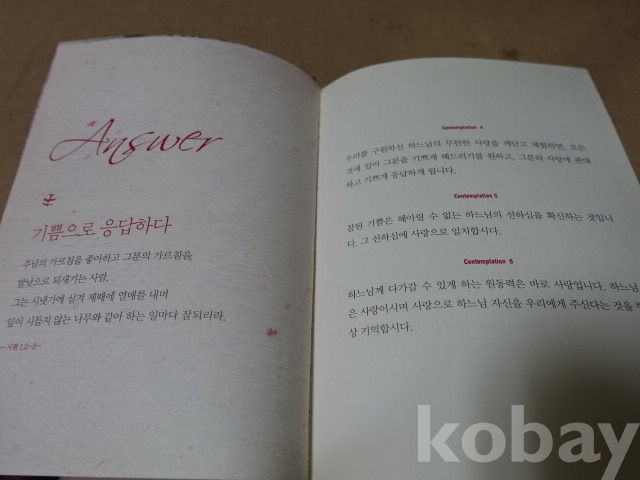 Answer
기쁨으로 응답하다
주님의 가르침을 좋아하고 그분의 가르침을
밤낮으로 되새기는 사람.
그는 시냇가에 심겨 제때에 열매를 내며
잎이 시들지 않는 나무와 같아 하는 일마다 잘되리라.
─ 시편 1,2-3 ─
Contemplation 4
우리를 구원하신 하느님의 무한한 사랑을 깨닫고 체험하면, 모든
것에 있어 그분을 기쁘게 해드리기를 원하고, 그분의 사랑에 관대
하고 기쁘게 응답하게 됩니다.
Contemplation 5
참된 기쁨은 헤아릴 수 없는 하느님의 선하심을 확신하는 것입니
다. 그 선하심에 사랑으로 일치합시다.
Contemplation 6
하느님께 다가갈 수 있게 하는 원동력은 바로 사랑입니다. 하느님
은 사랑이시며 사랑으로 하느님 자신을 우리에게 주신다는 것을
상 기억합시다.
kobay